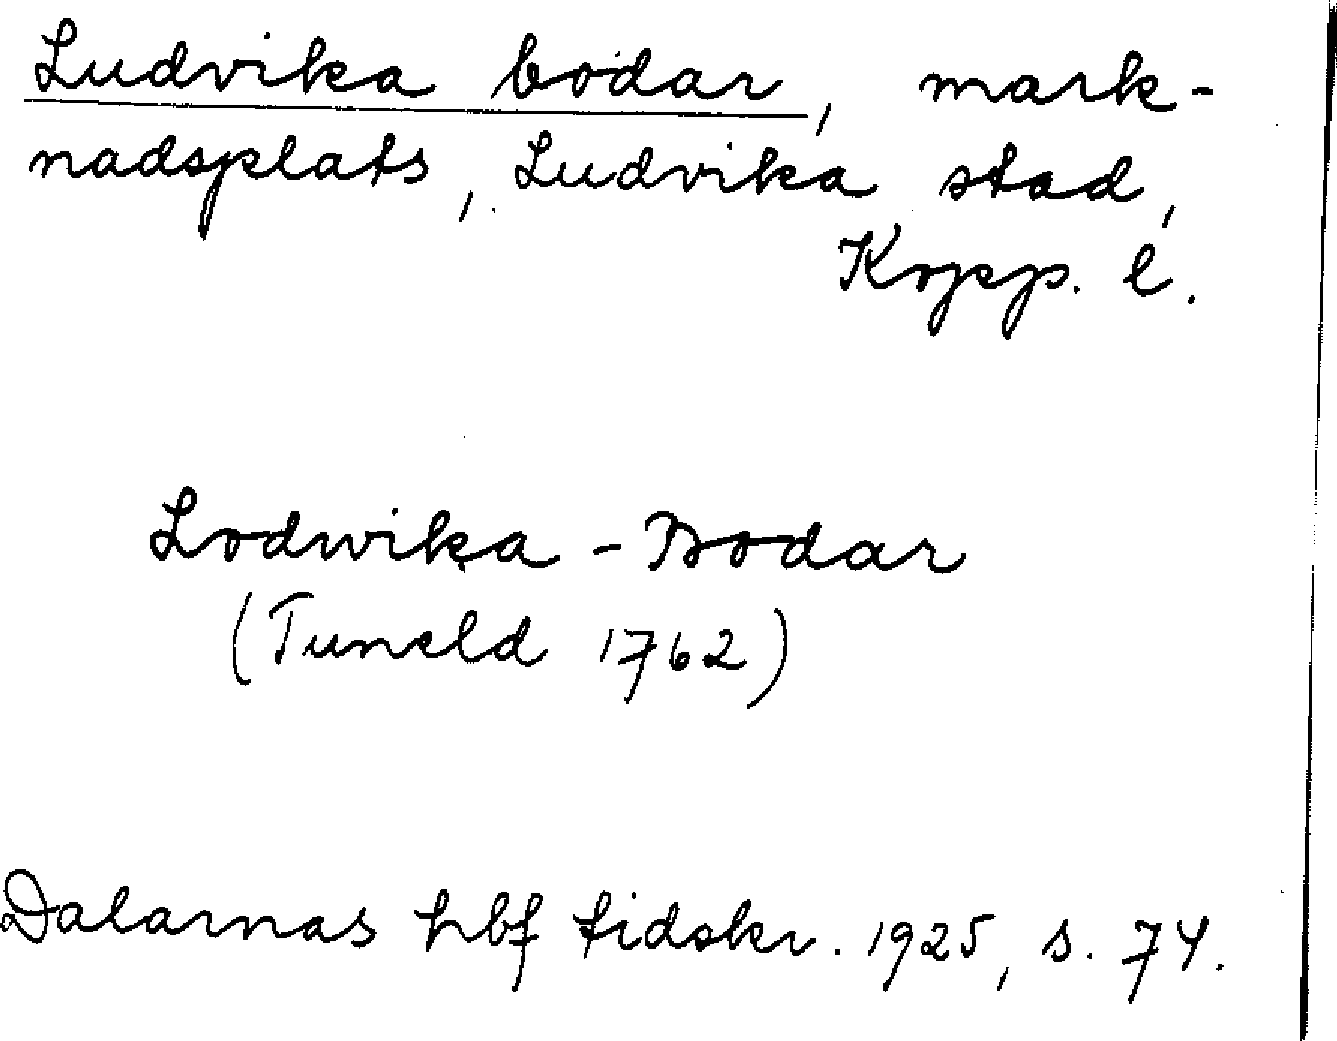 Ludvika bodar, mark-
nadsplats, Ludvika stad,
Kopp. l.
Lodwika - Bodar
(Tuneld 1762)
Dalarnas hbf tidskr. 1925, s. 74.